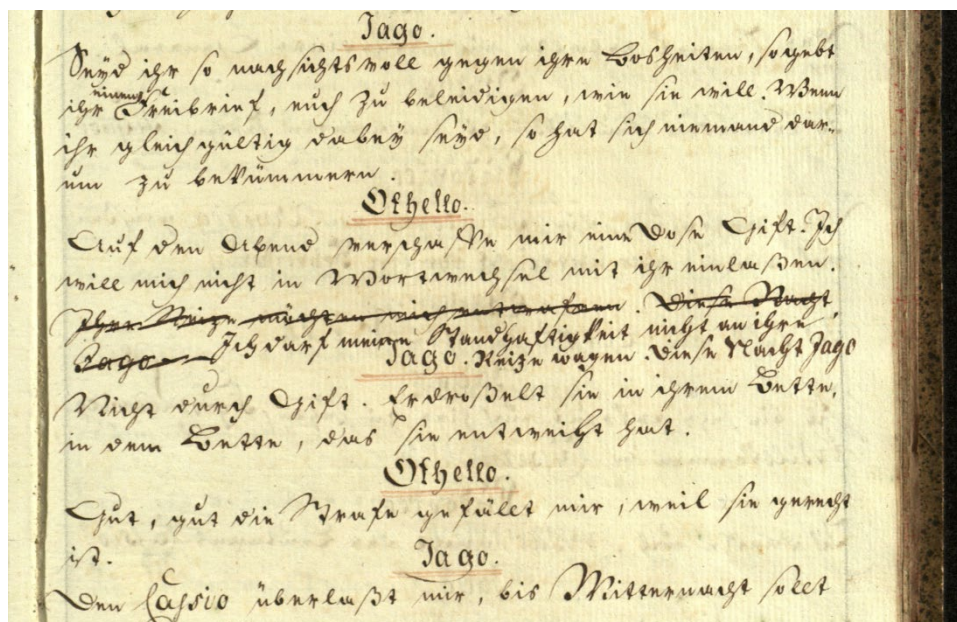 Jago.
Seyd ihr so nachsichtsvoll gegen ihre Bosheiten, so gebt
ihr einen Freibrief, euch zu beleidigen, wie sie will. Wenn
ihr gleichgültig dabey seyd, so hat sich niemand dar-
um zu bekümmern.
Othello.
Auf den Abend verschaffe mir eine Dose Gift. Ich
will mich nicht in Wortwechsel mit ihr einlaßen.
Ihre Reize möchten mich entwafnen. Diese Nacht,
Jago Ich darf meine Standhaftigkeit nicht an ihre
Jago. Reize wagen Diese Nacht Jago
Nicht durch Gift. Erdroßelt sie in ihrem Bette,
in dem Bette, das sie entweiht hat.
Othello.
Gut, gut die Strafe gefällt mir, weil sie gerecht
ist.
Jago.
Den Cassio überlaßt mir, bis Mitternacht sollt